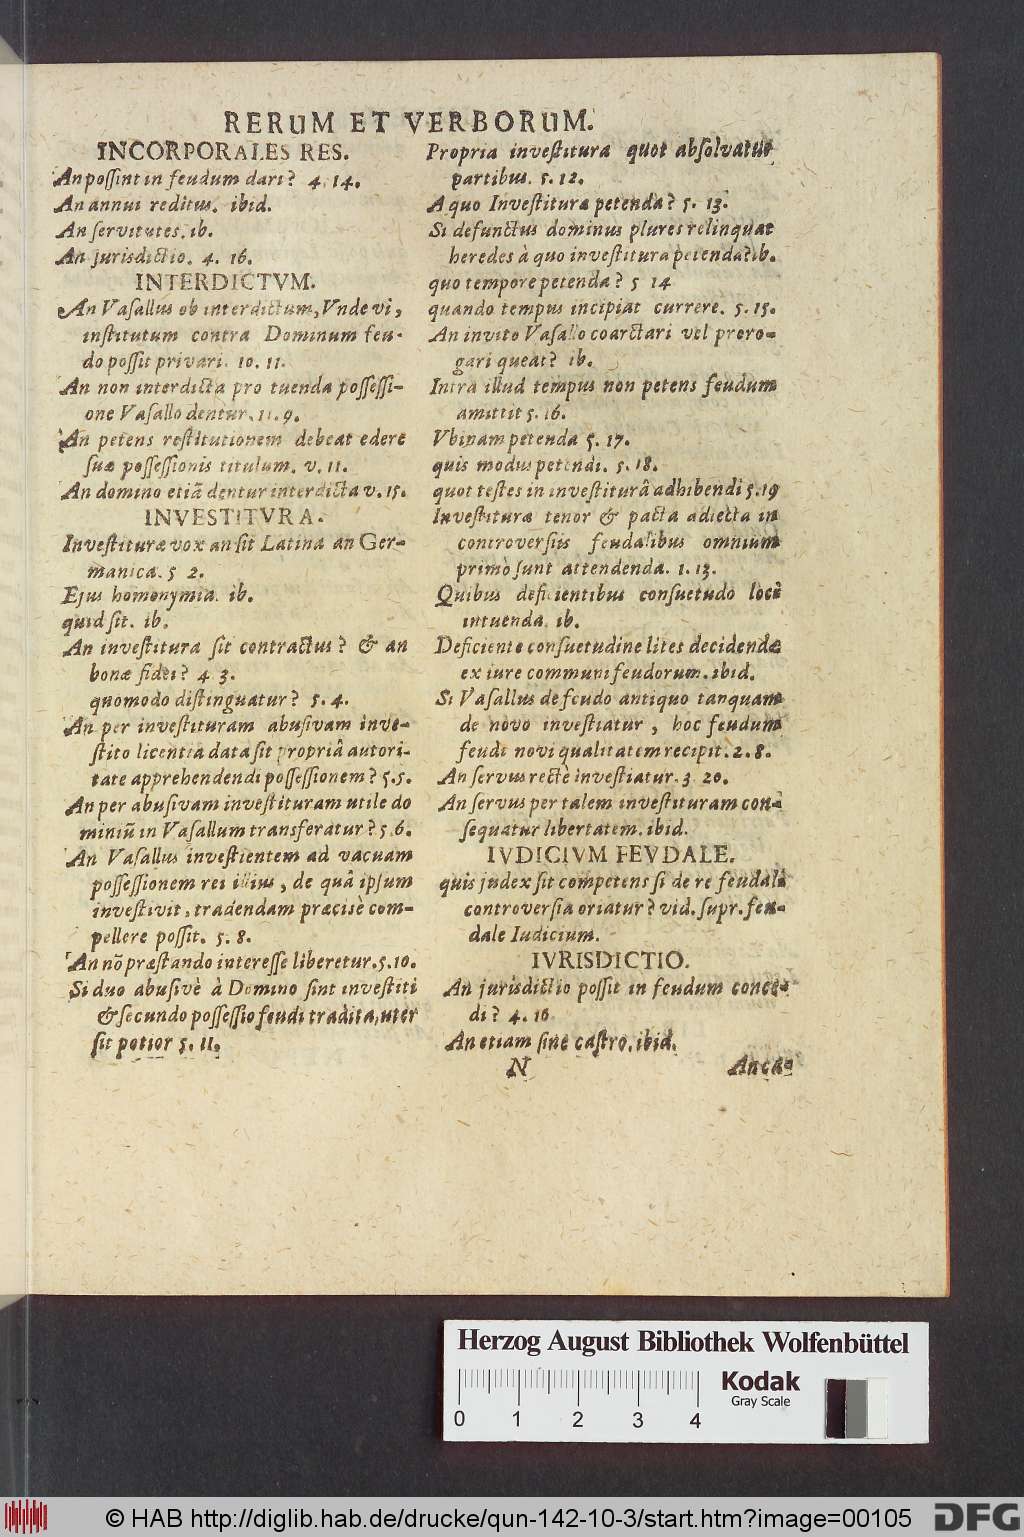 RERUM ET VERBORUM.
INCORPORALES RES.
An poſſint in feudum dari? 4. 14.
An annui reditus. ibid.
An ſervitutes. ib.
An jurisdictio. 4. 16.
INTERDICTVM.
An Vaſallus ob interdictum, Vnde vi,
inſtitutum contra Dominum feu-
do poſſit privari. 10. 11.
An non interdicta pro tuenda poſſeſſi-
one Vaſallo dentur. 11. 9.
An petens reſtitutionem debeat edere
ſuæ poſſeſſionis titulum. v. 11.
An domino etiã dentur interdicta v. 15.
INVESTITVRA.
Inveſtituræ vox an ſit Latina an Ger-
manica. 5 2.
Ejus homonymia. ib.
quid ſit. ib.
An inveſtitura ſit contractus? & an
bonæ fidei? 4 3.
quomodo diſtinguatur? 5. 4.
An per inveſtituram abuſivam inve-
ſtito licentia data ſit propriâ autori-
tate apprehendendi poſſeſſionem? 5. 5.
An per abuſivam inveſtituram utile do
miniũ in Vaſallum transferatur? 5 6.
An Vaſallus inveſtientem ad vacuam
poſſeſſionem rei illius, de quâ ipſum
inveſtivit, tradendam præcisè com-
pellere poſſit. 5. 8.
An nõ præſtando intereſſe liberetur. 5. 10.
Si duo abuſivè à Domino ſint inveſtiti
& ſecundo poſſeſſio feudi tradita, uter
ſit potior 5. 11.
Propria inveſtitura quot abſolvatur
partibus. 5. 12.
A quo Inveſtitura petenda? 5. 13.
Si defunctus dominus plures relinquat
heredes à quo inveſtitura petenda? ib.
quo tempore petenda? 5 14
quando tempus incipiat currere. 5. 15.
An invito Vaſallo coarctari vel proro-
gari queat? ib.
Intra illud tempus non petens feudum
amittit 5. 16.
Vbinam petenda 5. 17.
quis modus petendi. 5. 18.
quot teſtes in inveſtiturâ adhibendi 5. 19
Inveſtituræ tenor & pacta adiecta in
controverſiis feudalibus omnium
primò ſunt attendenda. 1. 13.
Quibus deficientibus conſuetudo loci
intuenda. ib.
Deficiente conſuetudine lites decidendæ
ex iure communi feudorum. ibid.
Si Vaſallus de feudo antiquo tanquam
de novo inveſtiatur, hoc feudum
feudi novi qualitatem recipit. 2. 8.
An ſervus rectè inveſtiatur. 3 20.
An ſervus per talem inveſtituram con-
ſequatur libertatem. ibid.
IVDICIVM FEVDALE.
quis judex ſit competens ſi de re feudali
controverſia oriatur? vid. ſupr. feu-
dale Iudicium.
IVRISDICTIO.
An jurisdictio poſſit in feudum conce-
di? 4. 16
An etiam ſine caſtro. ibid.
N
An ca-
Herzog August Bibliothek Wolfenbüttel
0 1 2 3 4
Kodak
Gray Scale
© HAB http://diglib.hab.de/drucke/qun-142-10-3/start.htm?image=00105
DFG